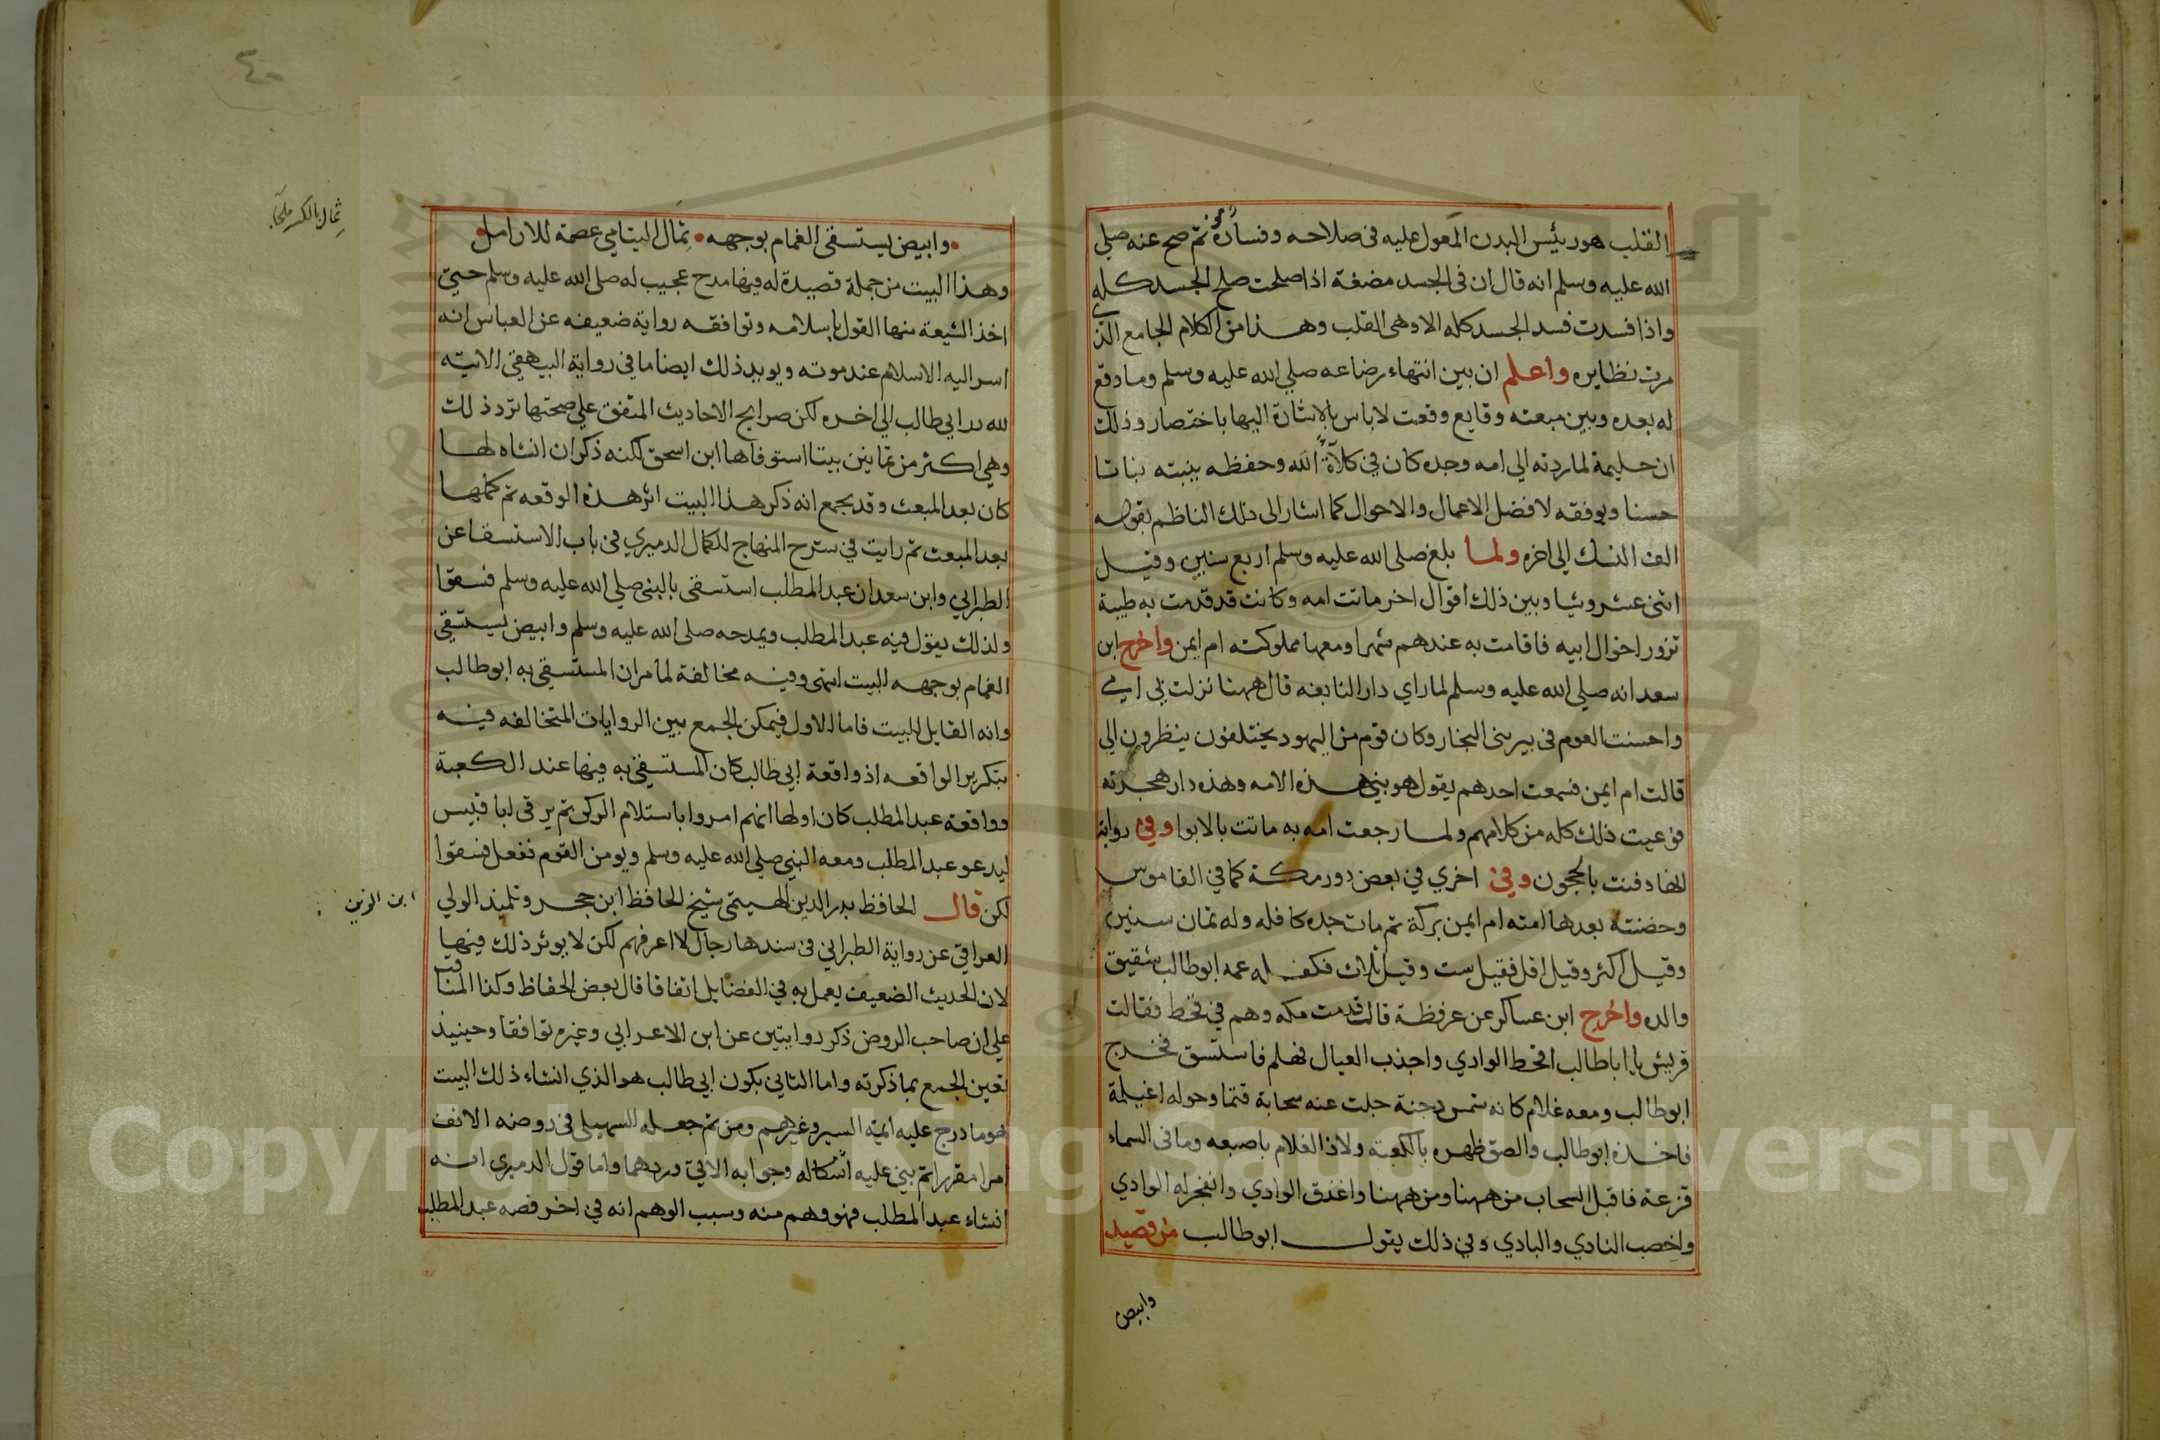 القلب هو رئيس البدن المعول عليه في صلاحه وفساده ثم صح عنه صلي
الله عليه وسلم انه قال ان في الجسد مضغة اذا صلحت صلح الجسد كله
واذا فسدت فسد الجسد كله الا وهي القلب وهذا من الكلام الجامع الذي
مرت نظايره واعلم ان بين انتهاء رضاعه صلي الله عليه وسلم وما وقع
له بعده وبين مبعثه وقايع وقعت لا باس بالاشارة اليها باختصار وذلك
ان حليمة لما ردته الي امه وجده كان في كلآة الله وحفظه ينبته نباتا
حسنا ويوفقه لافضل الاعمال والاحوال كما اشار الى ذلك الناظم بقوله
الف النسك الي اخره ولما بلغ صلى الله عليه وسلم اربع سنين وقيل
اثنى عشر وشيا وبين ذلك اقوال اخر ماتت امه وكانت قد قدمت به طيبة
تزور اخوال ابيه فاقامت به عندهم شهرا ومعها مملوكته ام ايمن واخرج ابن
سعد انه صلي الله عليه وسلم لما راي دار النابغه قال ههنا نزلت بي امي
واحسنت العوم في بير بني النجار وكان قوم من اليهود يختلفون ينظرون الي
قالت ام ايمن فسمعت احدهم يقول هو نبي هذه الامه وهذه دار هجرته
فوعيت ذلك كله من كلامهم ولما رجعت امه به ماتت بالابوا وفي رواية
انها دفنت بالحجون وفي اخري في بعض دور مكة كما في القاموس
وحضنته بعدها امته ام ايمن بركة ثم مات جده كافله وله ثمان سنين
وقيل اكثر وقيل اقل فقيل ست وقيل ثلاث فكفله عمه ابو طالب شقيق
والده واخرج ابن عساكر عن عرفظة قال قدمت مكه وهم في قحط فقالت
قريش يا ابا طالب اقحط الوادي واجذب العيال فهلم فاستسق فخرج
ابو طالب ومعه غلام كانه شمس دجنة جلت عنه سحابة قتما وحوله اغيلمة
فاخذه ابو طالب والصق ظهره بالكعبة ولاذ الغلام باصبعه وما في السماء
قزعة فاقبل السحاب من ههنا ومن ههنا واغدق الوادي وانفجر له الوادي
واخصب النادي والبادي وفي ذلك يقول ابو طالب من قصيد
وابيض
٤٠
وابيض يستسقى الغمام بوجهه ثمال اليتامي عصمة للارامل
ثمال بالكسر ملجا
وهذا البيت من جملة قصيدة له فيها مدح عجيب له صلى الله عليه وسلم حتى
اخذ الشيعة منها القول باسلامه وتوافقه رواية ضعيفه عن العباس انه
اسر اليه الاسلام عند موته ويويد ذلك ايضا ما في رواية البيهقي الاتيه
لله در ابي طالب الي اخره لكن صرايح الاحاديث المتفق علي صحتها ترد ذلك
وهي اكثر من ثمانين بيتا استوفاها ابن اسحق لكنه ذكر ان انشاه لها
كان بعد المبعث وقد يجمع انه ذكر هذا البيت اثر هذه الوقعه ثم كملها
بعد المبعث ثم رايت في شرح المنهاج للكمال الدميري في باب الاستسقا عن
الطبراني وابن سعد ان عبد المطلب استسقى بالنبي صلي الله عليه وسلم فسقوا
ولذلك يقول فيه عبد المطلب ويمدحه صلى الله عليه وسلم وابيض يستسقي
الغمام بوجهه البيت انتهى وفيه مخالفة لما مر ان المستسقي به ابو طالب
وانه القايل للبيت فاما الاول فيمكن الجمع بين الروايات المتخالفه فيه
بتكرير الواقعه اذ واقعة ابي طالب كان المستسقى به فيها عند الكعبة
وواقعة عبد المطلب كان اولها انهم امروا باستلام الركن ثم يرقى ابا قبيس
ليدعو عبد المطلب ومعه النبي صلي الله عليه وسلم ويومن القوم ففعل فسقوا
لكن قال الحافظ بدر الدين الهيتمي شيخ الحافظ ابن حجر وتلميذ الولي
ابن الزين
العراقي عن رواية الطبراني في سندها رجال لا اعرفهم لكن لا يوثر ذلك فيها
لان الحديث الضعيف يعمل به في الفضايل اتفاقا قال بعض الحفاظ وكذا المناقب
علي ان صاحب الروض ذكر روايتين عن ابن الاعرابي وغيره توافقا وحينيذ
تعين الجمع بما ذكرته واما الثاني بكون ابي طالب هو الذي انشاء ذلك البيت
هو ما درج عليه ايمة السير وغيرهم ومن ثم جعله السهيلي في روضه الانف
امرا مقررا ثم بني عليه اشكاله وجوابه الاتي وردهما واما قول الدميري انه
انشاء عبد المطلب فهو وهم منه وسبب الوهم انه في اخر قصه عبد المطلب
Copyright © King Saud University